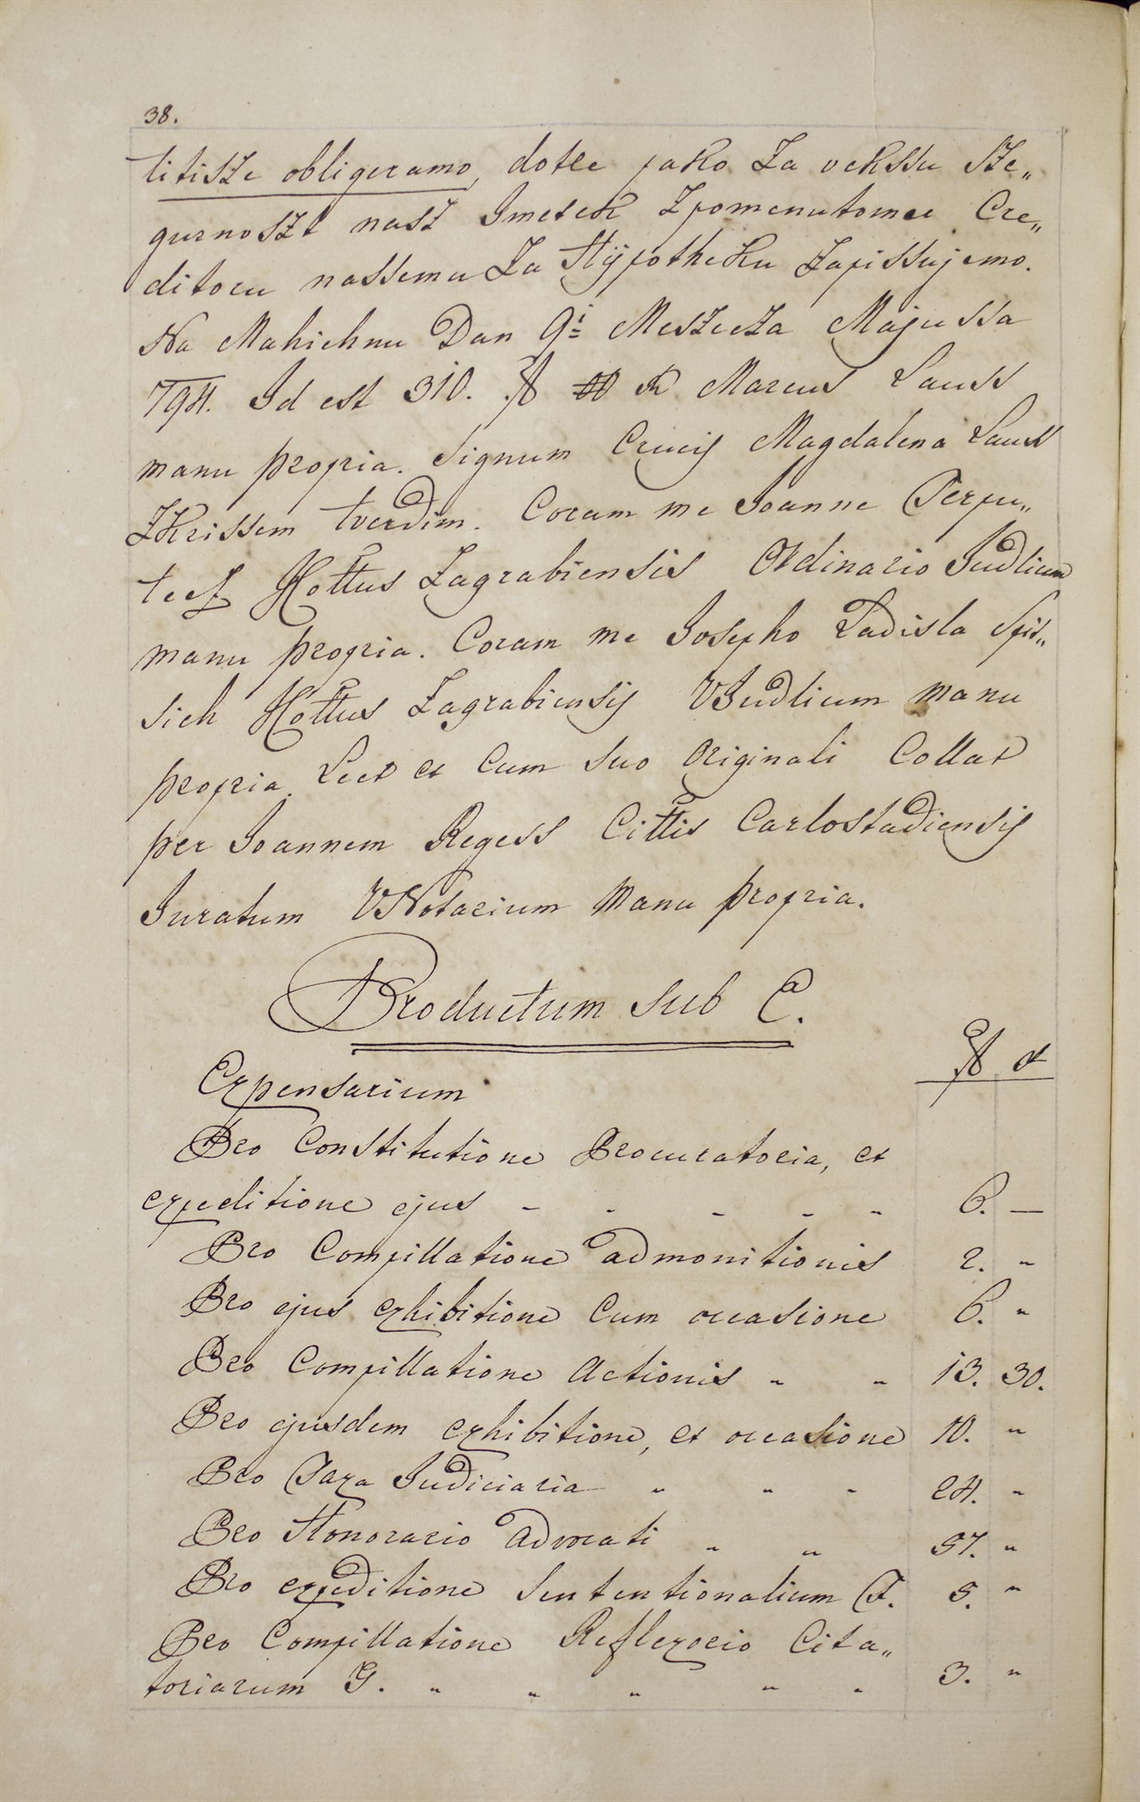 38.
titisze obligeramo, dotle jako Za vekssu Sze„
gurnoszt nasz Imetek Zpomenutomu Cre„
ditoru nassemu Za Hÿpotheku Zapissujemo.
Na Mahichnu Dan 9i Meszecza Majussa
794. Id est 310. f Marcus Lauss
manu propria. Signum Crucis Magdalena Lauss
Zkrissem tverdim. Coram me Joanne Terpu„
tecz Cottus Zagrabiensis Ordinario Judlium
manu propria. Coram me Josepho Ladisla Spis„
sich Cottus Zagrabiensis VJudlium manu
propria. Lect et Cum suo Originali Collat
per Joannem Regess Cittis Carlostadiensis
Juratum VNotarium manu propria.
Productum sub C.
f d
Expensarium
Pro Constitutione Procuratoria, et
expeditione ejus - - - - - 6. —
Pro Compillatione admonitionis 2. "
Pro ejus exhibitione Cum occasione 6. "
Pro Compillatione Actionis " " 13. 30.
Pro ejusdem exhibitione, et occasione 10. "
Pro Taxa Judiciaria " " " 24. "
Pro Honorario Advocati " " 57. "
Pro expeditione Sententionalium F. 5. "
Pro Compillatione Reflexorio Cita„
toriarum G. " " " " " 3. "